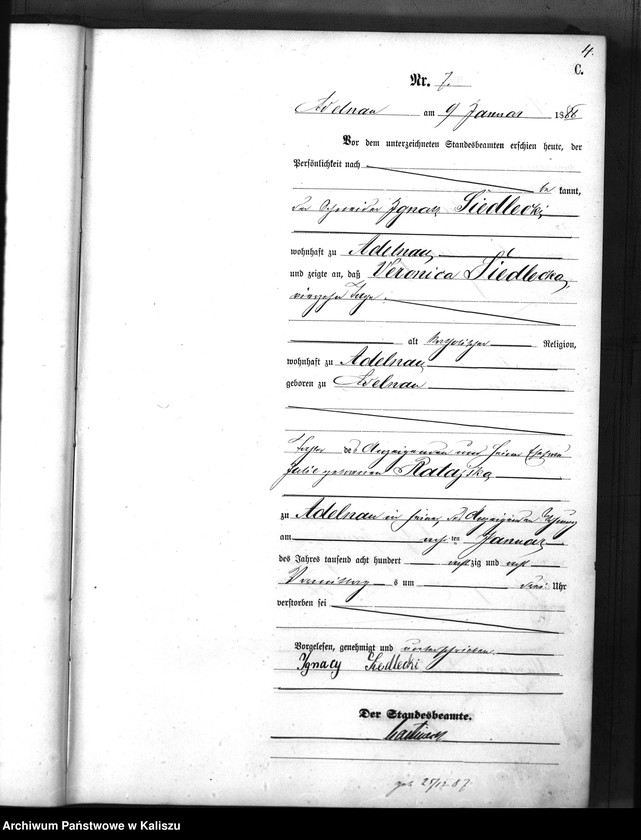 4.
C.
Nr. 7.
Adelnau am 9 Januar 1888
Vor dem unterzeichneten Standesbeamten erschien heute, der
Persönlichkeit nach
be kannt,
der Schneider Ignatz Siedlecki,
wohnhaft zu Adelnau,
und zeigte an, daß Veronica Siedlecka,
vierzehn Tage
alt katholischer Religion,
wohnhaft zu Adelnau,
geboren zu Adelnau
Tochter des Anzeigenden und seiner Ehefrau
Julie geborenen Rataiska
zu Adelnau in seiner, des Anzeigenden Wohnung
am achten Januar
des Jahres tausend acht hundert achtzig und acht
Vormittags um drei Uhr
verstorben sei
Vorgelesen, genehmigt und unterschrieben.
Ignacy Siedlecki
Der Standesbeamte.
Archiwum Państwowe w Kaliszu